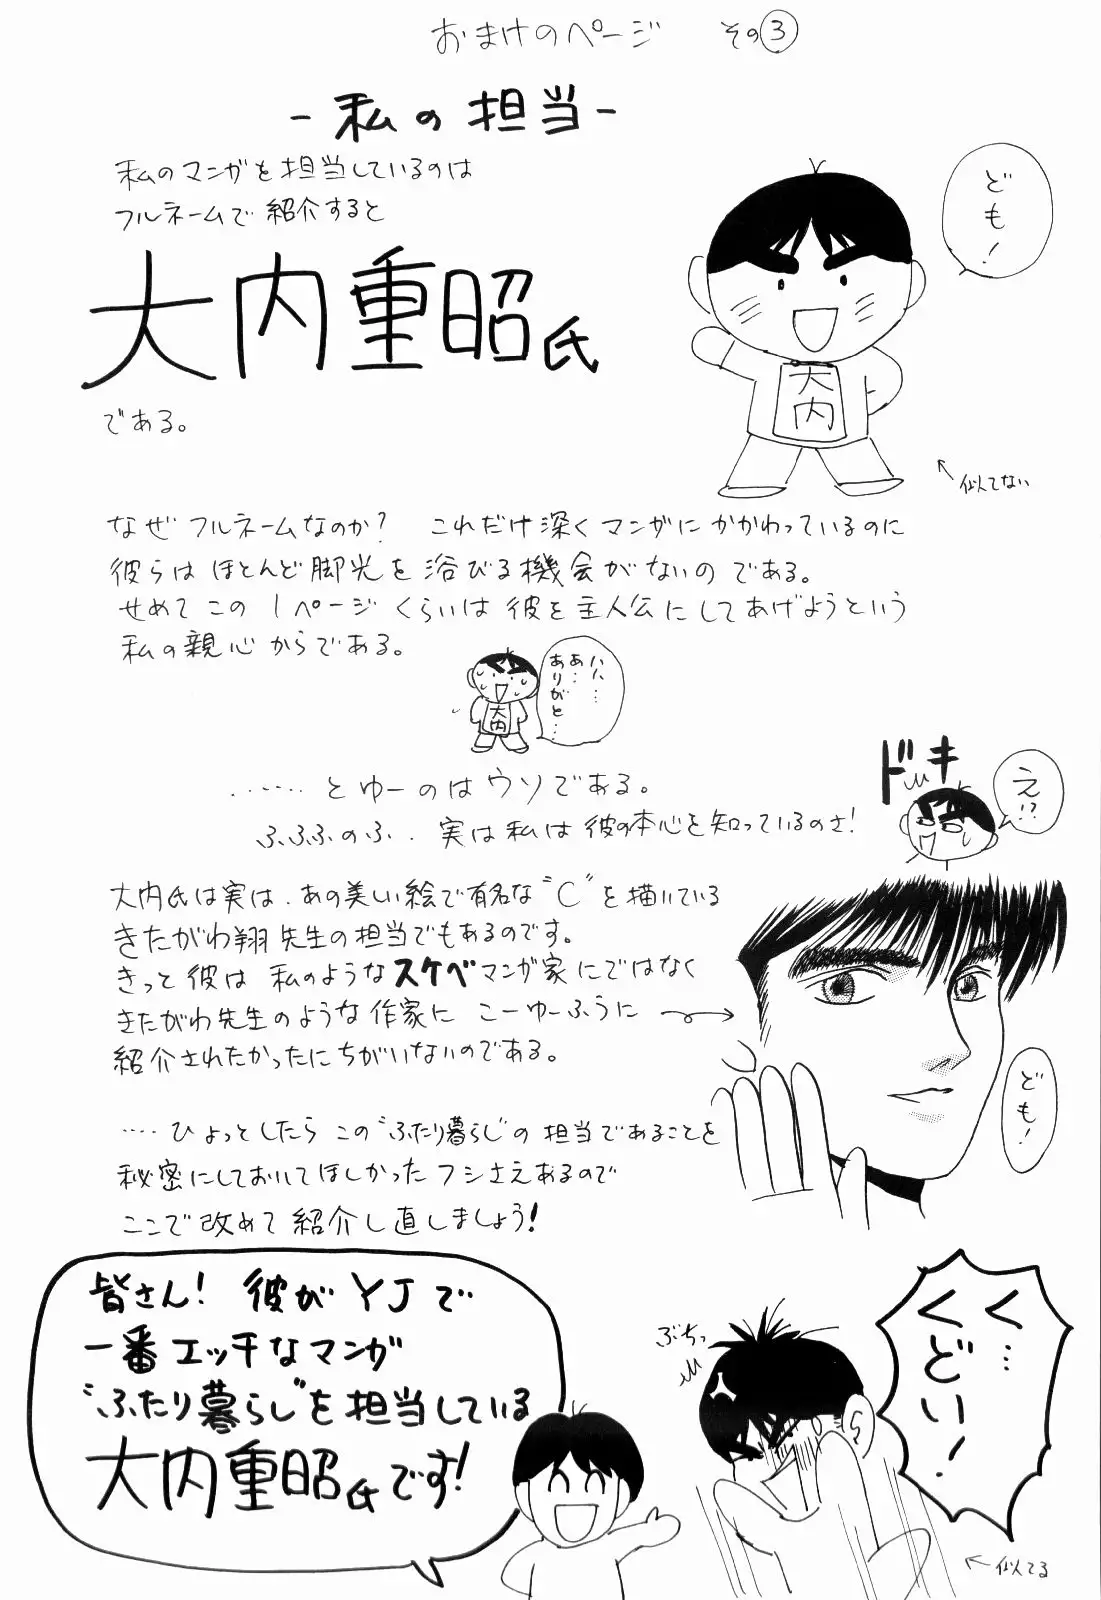 おまけのページ その③
-私の担当-
私のマンガを担当しているのは
フルネームで紹介すると
大内重昭氏
である。
ども!
大内
←似てない
なぜフルネームなのか? これだけ深くマンガにかかわっているのに
彼らはほとんど脚光を浴びる機会がないのである。
せめてこの1ページくらいは彼を主人公にしてあげようという
私の親心からである。
ハハ…
あ…
ありがと…
大内
……とゆーのはウソである。
ふふふのふ..実は私は彼の本心を知っているのさ!
ドキ
え!?
大内氏は実は、あの美しい絵で有名な“C”を描いている
きたがわ翔先生の担当でもあるのです。
きっと彼は私のようなスケベマンガ家にではなく
きたがわ先生のような作家にこーゆーふうに→
紹介されたかったにちがいないのである。
ども!
….ひょっとしたらこの“ふたり暮らし”の担当であることを
秘密にしておいてほしかったフシさえあるので
ここで改めて紹介し直しましょう!
皆さん!彼がYJで
一番エッチなマンガ
“ふたり暮らし”を担当している
大内重昭氏です!
ぶちっ
く…
くどい!
←似てる